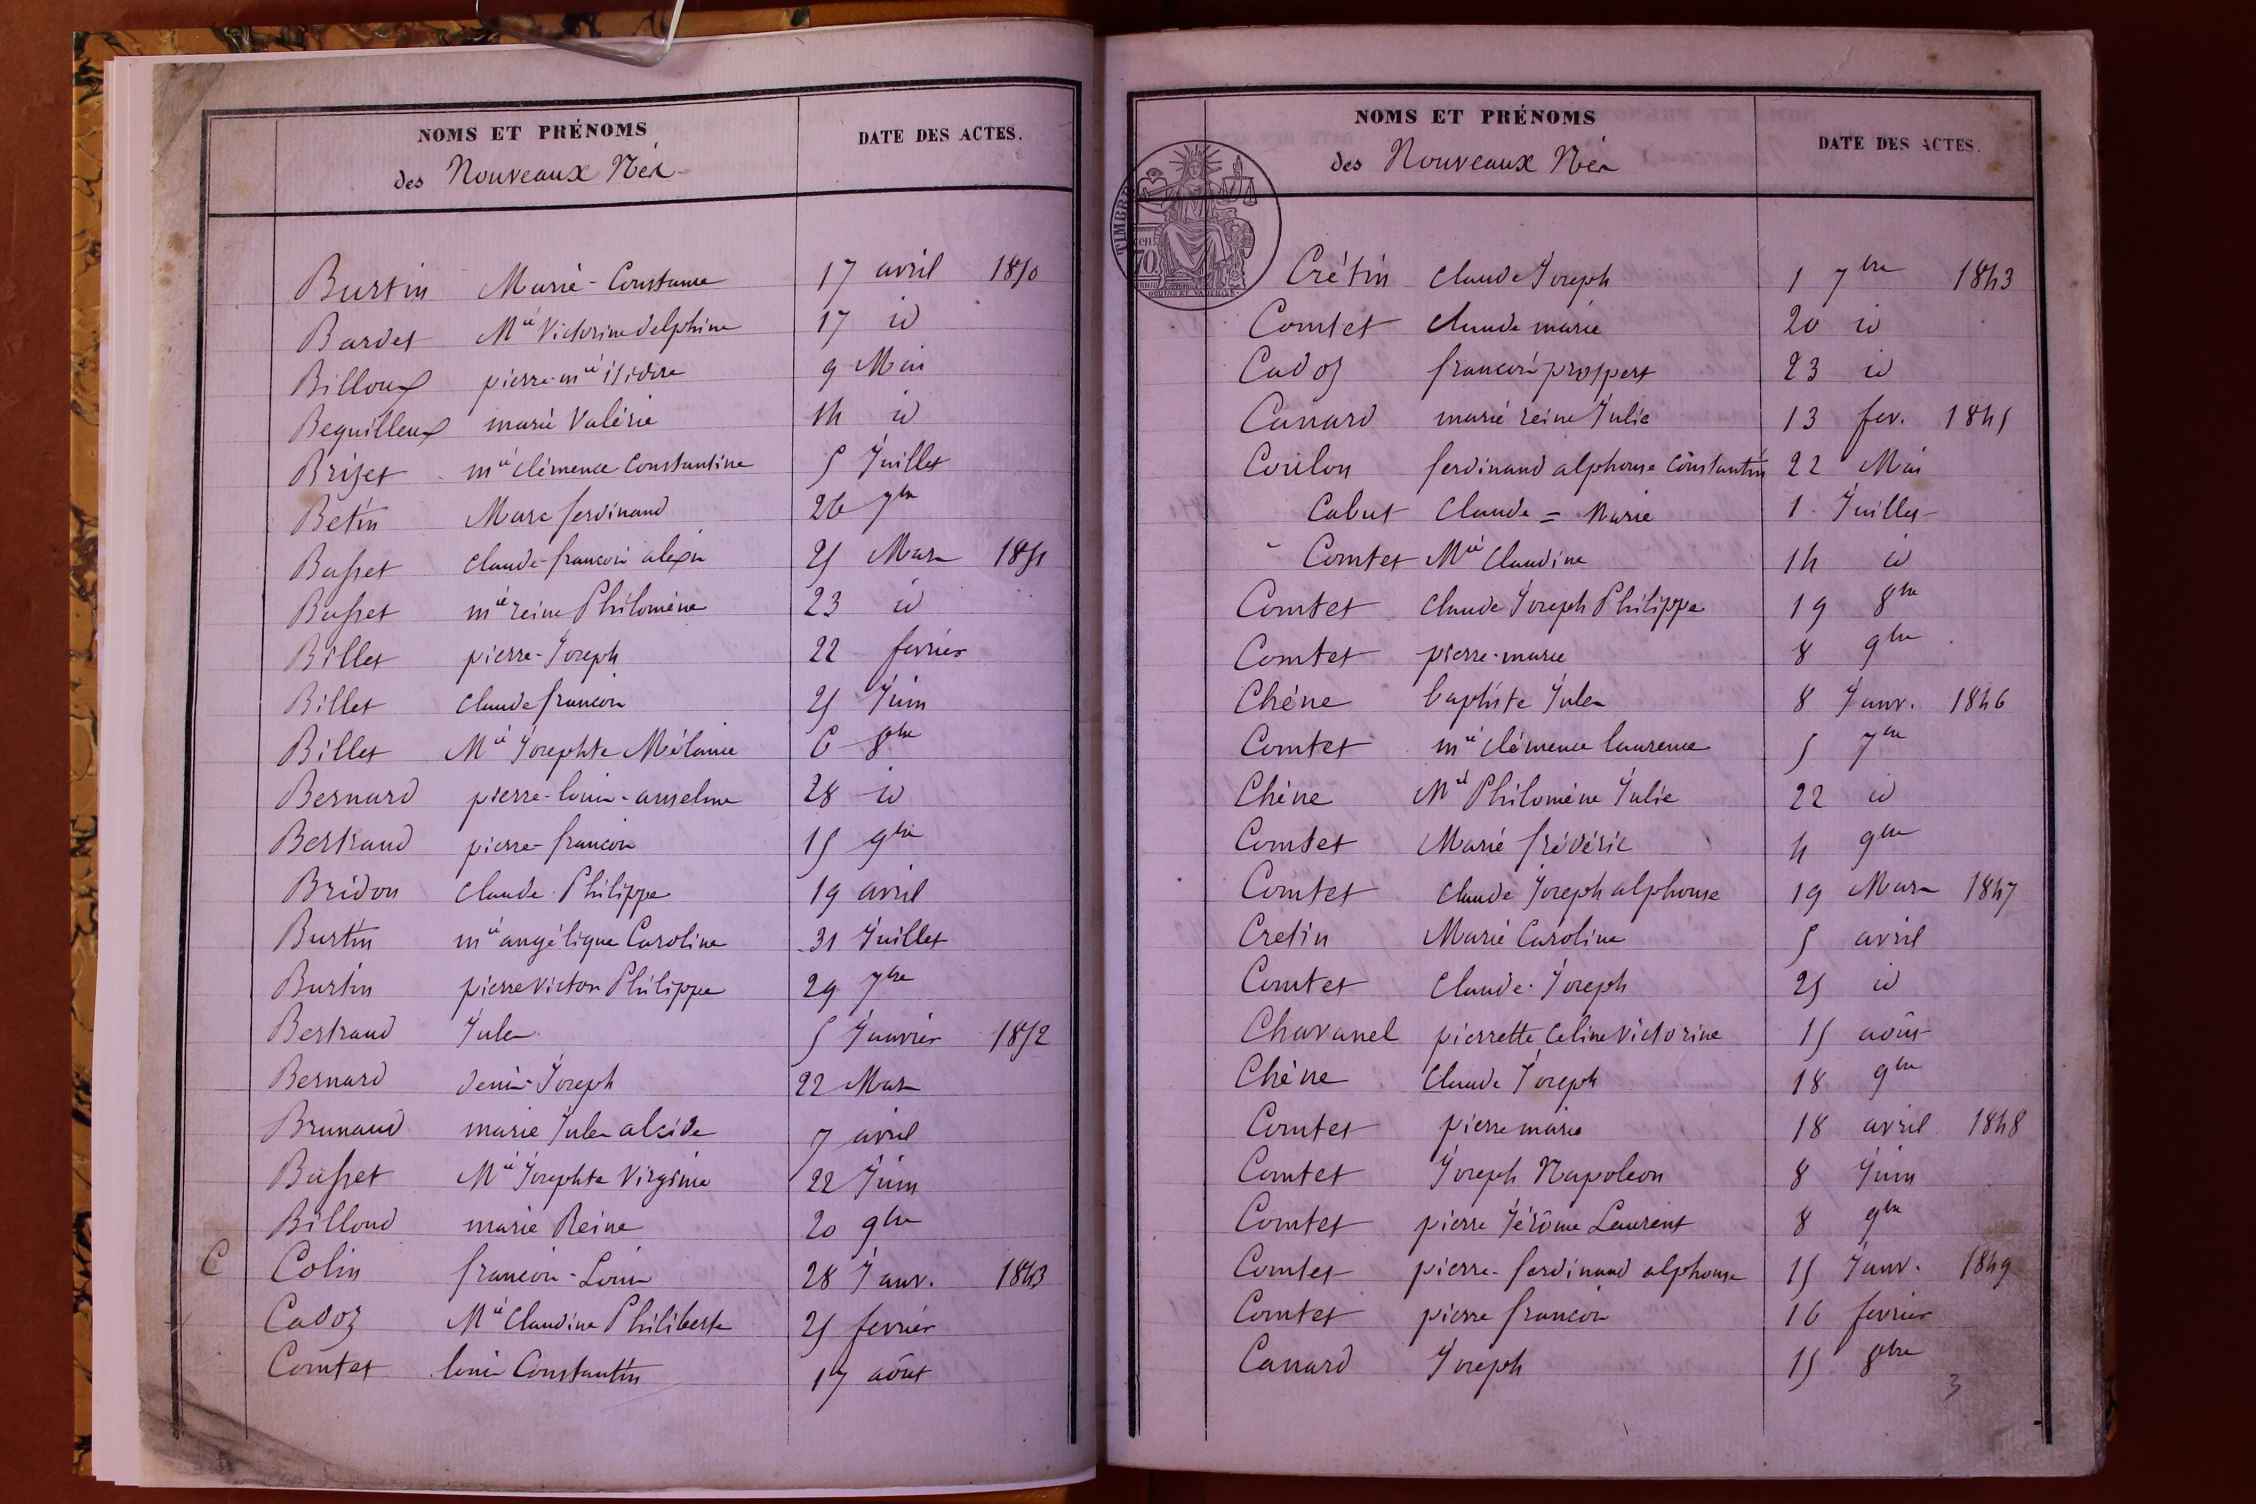 NOMS ET PRÉNOMS DATE DES ACTES.
des Nouveaux Nés
Burtin Marie-Constance 17 avril 1850
Bardet Mie Victorine delphine 17 id
Billoux pierre-mie isidore 9 Mai
Bequilleux marie Valérie 14 id
Briset mie clémence Constantine 5 Juillet
Betin Marc ferdinand 26 7bre
Basset claude-francois alexis 25 Mars 1851
Basset mie reine Philomène 23 id
Billet pierre-Joseph 22 fevrier
Billet claude francois 25 Juin
Billet Mie Josephte Mélanie 6 8bre
Bernard pierre-louis-anselme 28 id
Bertrand pierre-francois 15 9bre
Bridon claude-Philippe 19 avril
Burtin mie angélique Caroline 31 Juillet
Burtin pierre victor Philippe 29 7bre
Bertrand Jules 5 Janvier 1852
Bernard denis-Joseph 22 Mars
Brunaud marie Jules alcide 7 avril
Basset Mie Josephte Virginie 22 Juin
Billoud marie Reine 20 9bre
C Colin francois-Louis 28 Janv. 1843
Cadoz Mie Claudine Philiberte 25 fevrier
Comtet louis Constantin 17 août
NOMS ET PRÉNOMS DATE DES ACTES.
des Nouveaux Nés
TIMBRE
70
Crétin claude Joseph 1 7bre 1843
Comtet claude marie 20 id
Cadoz francois prospert 23 id
Canard marie reine Julie 13 fev. 1845
Coulon ferdinand alphonse Constantin 22 Mai
Cabut Claude = Marie 1 Juillet
Comtet Mie Claudine 14 id
Comtet claude Joseph Philippe 19 8bre
Comtet pierre-marie 8 9bre
Chéne baptiste Jules 8 Janv. 1846
Comtet mie clémence laurence 5 7bre
Chène Mie Philomène Julie 22 id
Comtet Marie frédéric 4 9bre
Comtet claude Joseph alphonse 19 Mars 1847
Cretin Marie Caroline 5 avril
Comtet Claude-Joseph 25 id
Chavanel pierrette Celine victorine 15 août
Chène Claude Joseph 18 9bre
Comtet pierre marie 18 avril 1848
Comtet Joseph Napoleon 8 Juin
Comtet pierre Jérôme Laurent 8 9bre
Comtet pierre-ferdinand alphonse 15 Janv. 1849
Comtet pierre francois 16 fevrier
Canard Joseph 15 8bre
3